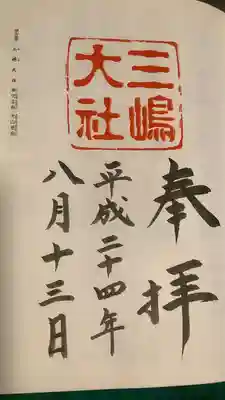 奉拝
三嶋
大社
平成二十四年
八月十三日